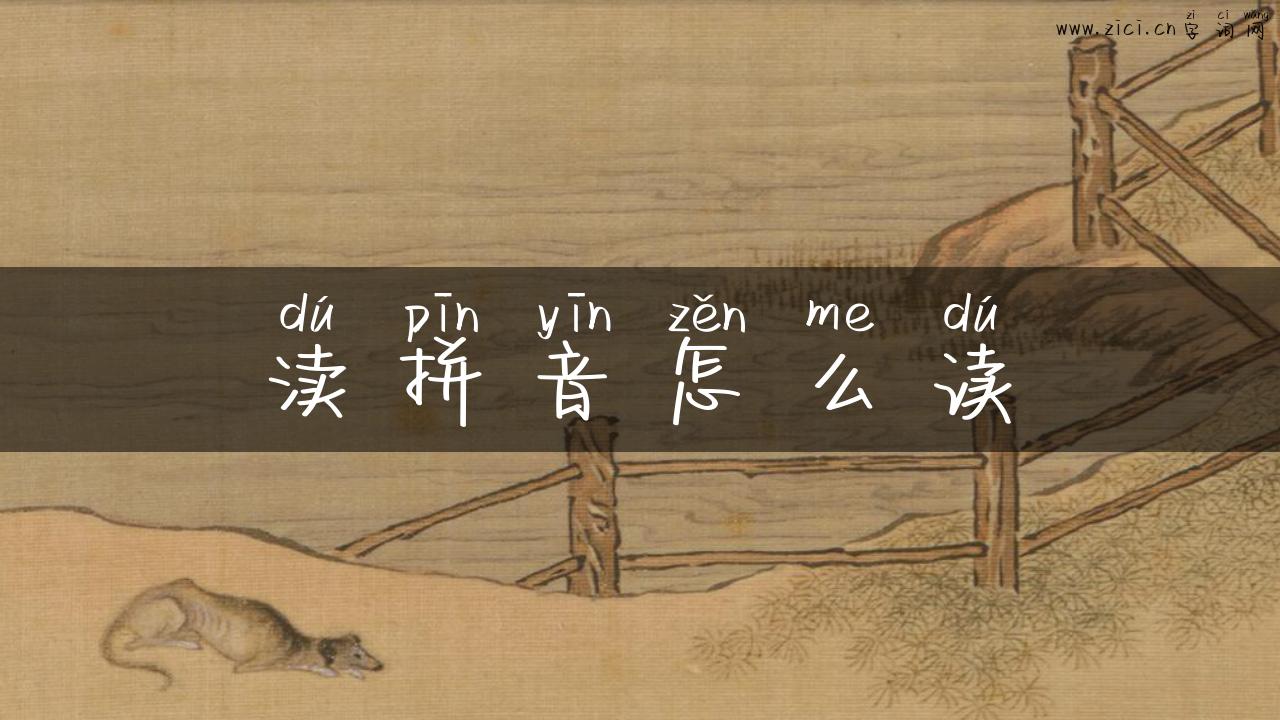 zì cí wǎng
www.zici.cn 字词网
dú pīn yīn zěn me dú
渎拼音怎么读